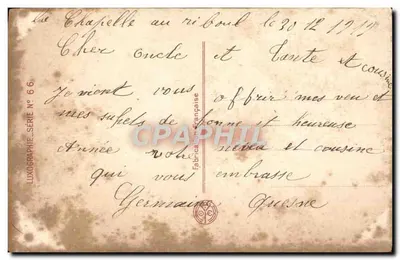 La Chapelle au riboul le 30 12 1919
Cher oncle et Tante et cousine
Je vient vous offrir mes veu et
mes suhets de bonne et heureuse
Année votre neveu et cousine
qui vous embrasse
Germaine Quesne
LUXOGRAPHIE_SÉRIE N° 66
Fabrication Française
Delcampe